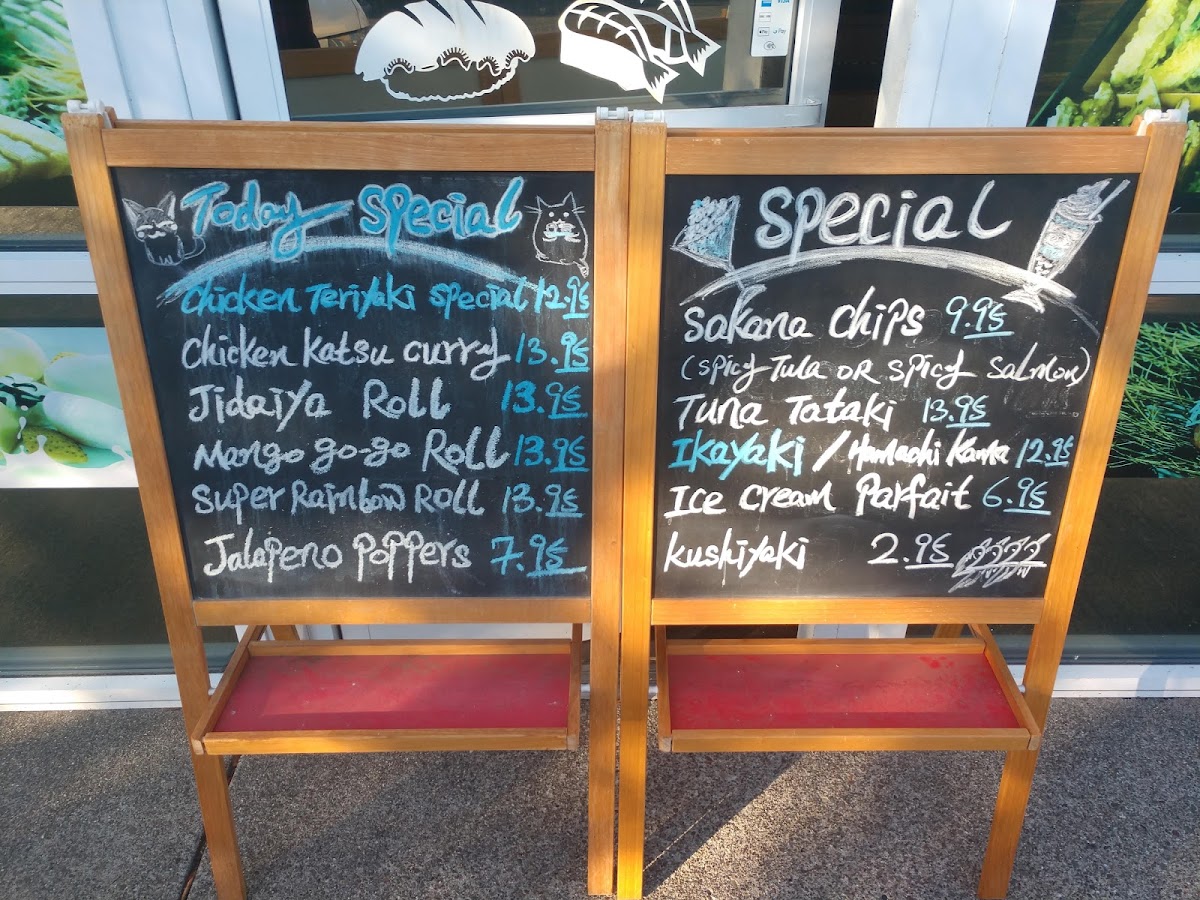 Today Special
Chicken Teriyaki Special 12.95
Chicken Katsu curry 13.95
Jidaiya Roll 13.95
Mango go-go Roll 13.95
Super Rainbow Roll 13.95
Jalapeno Poppers 7.95
Special
Sakana Chips 9.95
(Spicy Tula OR Spicy Salmon)
Tuna Tataki 13.95
Ikayaki / Hamachi Kama 12.95
Ice Cream Parfait 6.95
Kushiyaki 2.95